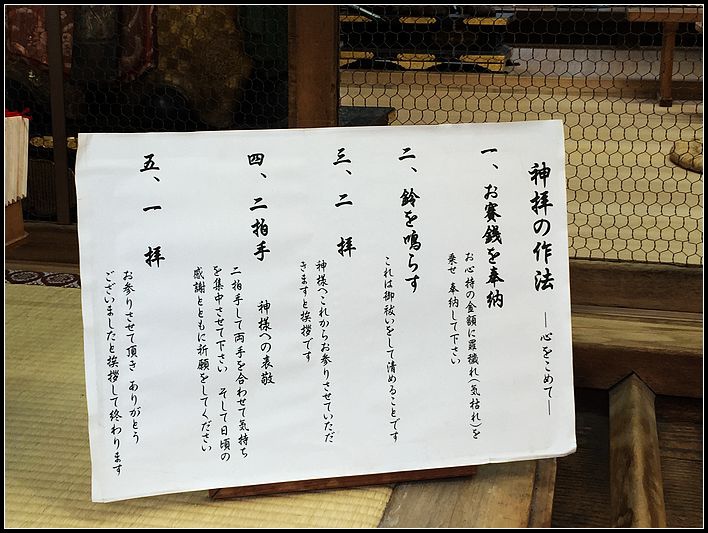 神拝の作法 ―心をこめて―
一、お賽銭を奉納
お心持の金額に罪穢れ(気枯れ)を
乗せ 奉納して下さい
二、鈴を鳴らす
これは御祓いをして清めることです
三、二 拝
神様へこれからお参りさせていただ
きますと挨拶です
四、二拍手 神様への表敬
二拍手して両手を合わせて気持ち
を集中させて下さい そして日頃の
感謝とともに祈願をしてください
五、一 拝
お参りさせて頂き ありがとう
ございましたと挨拶して終わります